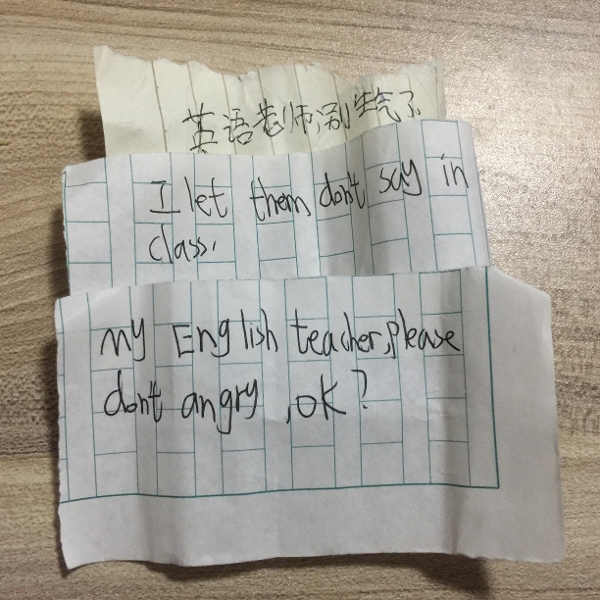 英语老师,别生气了
I let them don't say in
class.
My English teacher,please
don't angry ,ok?